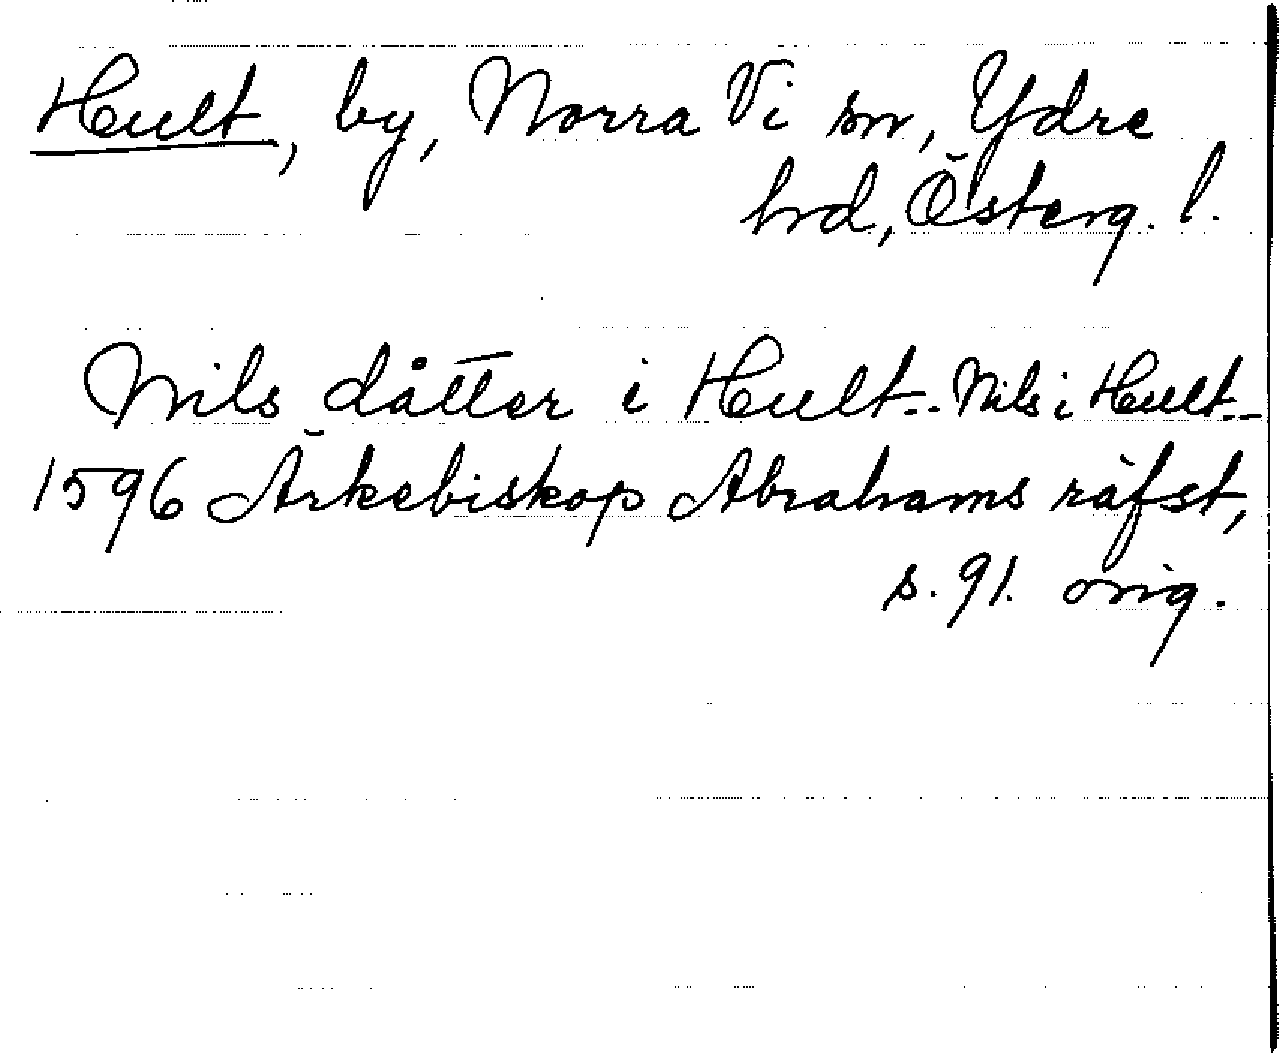 Hult, by, Norra Vi sn, Ydre
hrd, Österg. l.
Nils dåtter i Hult-- Nils i Hult--
1596 Ärkebiskop Abrahams räfst,
s. 91. orig.